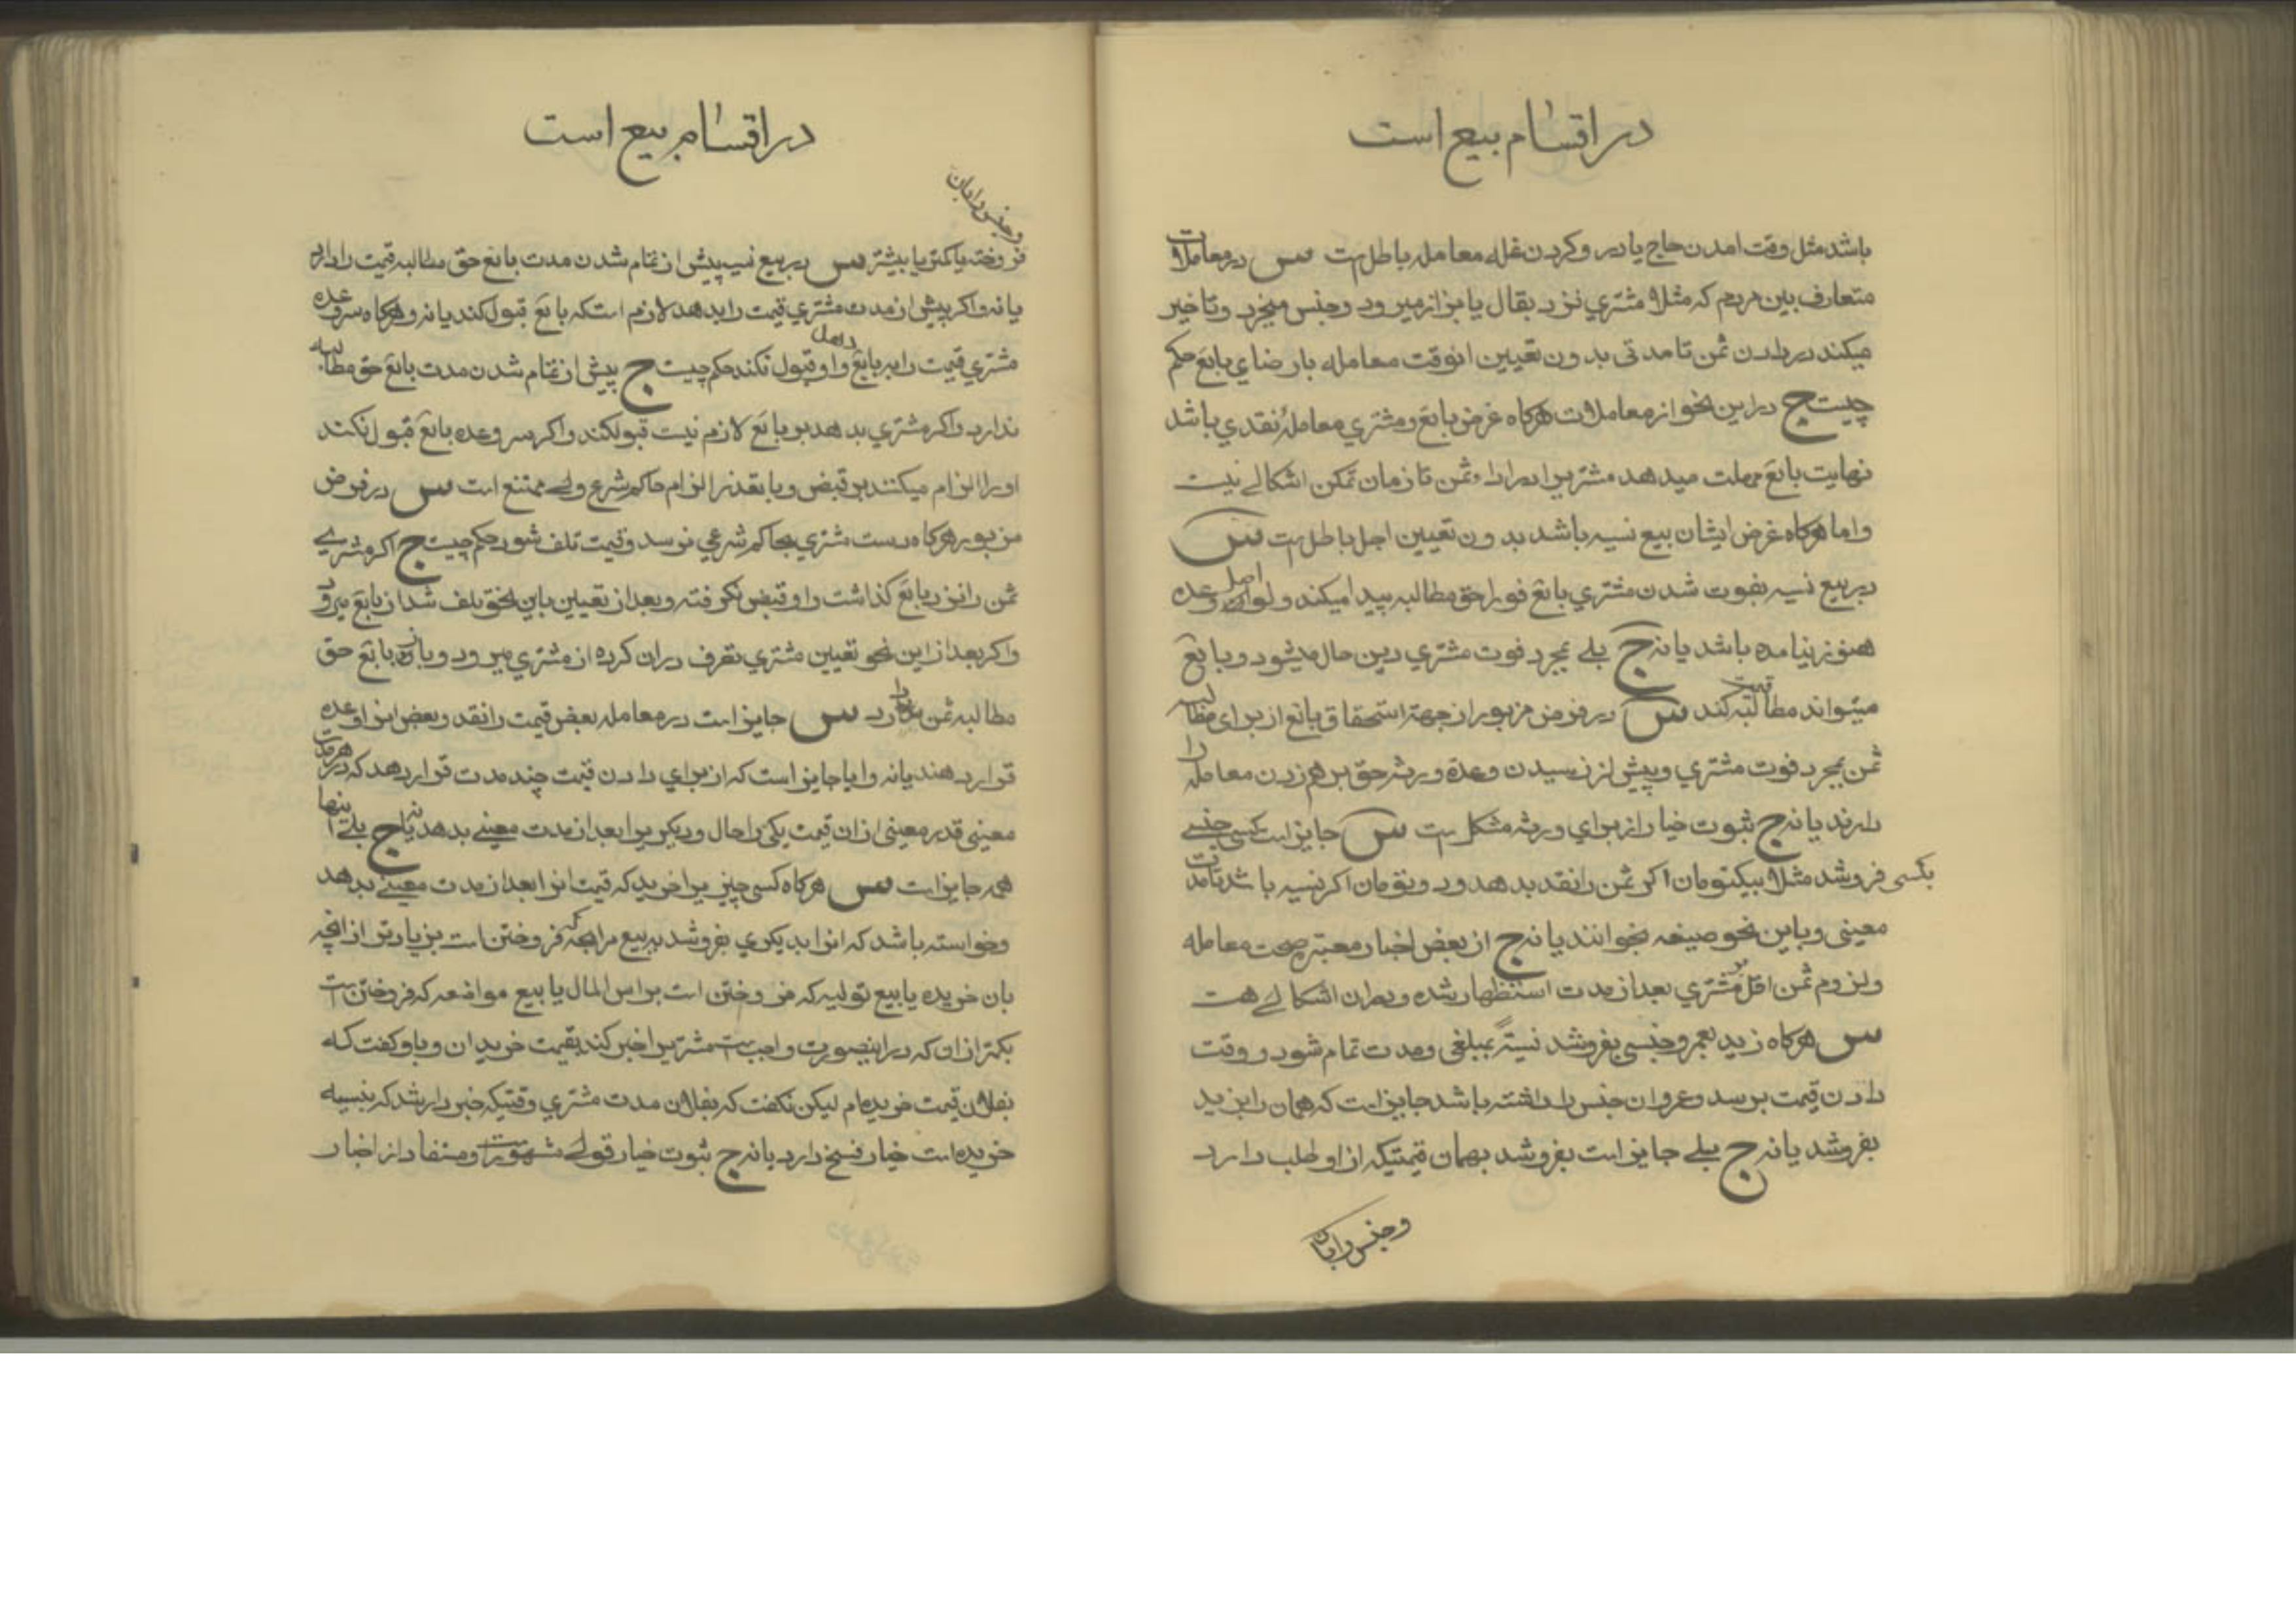 در اقسام بیع است
باشد مثل وقت امدن حاج یا درو کردن غله معامله باطل است س در معاملات
متعارف بین مردم که مثلا مشتری نزد بقال یا بزاز میرود و جنس میخرد و تاخیر
میکند در دادن ثمن تا مدتی بدون تعیین انوقت معامله با رضای بایع حکم
چیست ج در این نحو از معاملات هرکاه غرض بایع و مشتری معاملهٔ نقدی باشد
نهایت بایع مهلت میدهد مشتریرا در اداء ثمن تا زمان تمکن اشکالے نیست
و اما هرکاه غرض ایشان بیع نسیه باشد بدون تعیین اجل باطل است س
در بیع نسیه بفوت شدن مشتری بایع فورا حق مطالبه پیدا میکند ولو اصل وعده
هنوز نیامده باشد یا نه ج بلے بمجرد فوت مشتری دین حال میشود و بایع
میتواند مطالبه قیمت کند س در فرض مزبور از جهة استحقاق بایع از برای مطالبه
ثمن بمجرد فوت مشتری و پیش از رسیدن وعده ورثه حق برهم زدن معامله را
دارند یا نه ج ثبوت خیار از برای ورثه مشکل است س جایز است کسی جنسے
بکسی فروشد مثلا بیکتومان اکر ثمن را نقد بدهد و دو تومان اکر نسیه باشد تا مدت
معینی و باین نحو صیغه بخوانند یا نه ج از بعض اخبار معتبر صحت معامله
و لزوم ثمن اقل بر مشتری بعد از مدت استظهار شده و در ان اشکالے هست
س هرکاه زید بعمرو جنسی بفروشد نسیةً بمبلغی و مدت تمام شود و وقت
دادن قیمت برسد و عمرو ان جنس را داشته باشد جایز است که همان را بزید
بفروشد یا نه ج بلے جایز است بفروشد بهمان قیمتیکه از او طلب دارد
و جنس را بان
در اقسام بیع است
و جنس را بان
فروخته یا کمتر یا بیشتر س در بیع نسیه پیش از تمام شدن مدت بایع حق مطالبه قیمت را دارد
یا نه و اکر پیش از مدت مشتری قیمت را بدهد لازم است که بایع قبول کند یا نه و هرکاه سر وعده
مشتری قیمت را ببایع داد و او قبول نکند حکم چیست ج پیش از تمام شدن مدت بایع حق مطالبه
ندارد و اکر مشتری بدهد بر بایع لازم نیست قبول کند و اکر سر وعده بایع قبول نکند
او را الزام میکنند بر قبض و با تعذر الزام حاکم شرع ولے ممتنع است س در فرض
مزبور هرکاه دست مشتری بحاکم شرعی نرسد و قیمت تلف شود حکم چیست ج اکر مشترے
ثمن را نزد بایع کذاشت و او قبض نکرفته و بعد از تعیین باین نحو تلف شد از بایع میرود
و اکر بعد از این نحو تعیین مشتری تصرف در ان کرده از مشتری میرود و باز بایع حق
مطالبه ثمن را دارد س جایز است در معامله بعض قیمت را نقد و بعض انرا وعده
قرار دهند یا نه و ایا جایز است که از برای دادن قیمت چند مدت قرار دهد که در هر مدت
معینی قدر معینی از ان قیمت یکی را حال و دیکریرا بعد از مدت معینے بدهد یا نه ج بلے اینها
همه جایز است س هرکاه کسی چیزیرا خرید که قیمت انرا بعد از مدت معینے بدهد
و خواسته باشد که انرا بدیکری بفروشد به بیع مرابحه که فروختن است بزیادتر از انچه
بان خریده یا بیع تولیه که فروختن است براس المال یا بیع مواضعه که فروختن است
بکمتر از ان که در اینصورت واجب است مشتریرا خبر کند بقیمت خرید ان و باو کفت که
بفلان قیمت خریده‌ام لیکن نکفت که بفلان مدت مشتری وقتیکه خبردار شد که بنسیه
خریده است خیار فسخ دارد یا نه ج ثبوت خیار قولے مشهور است و مستفاد از اخبار